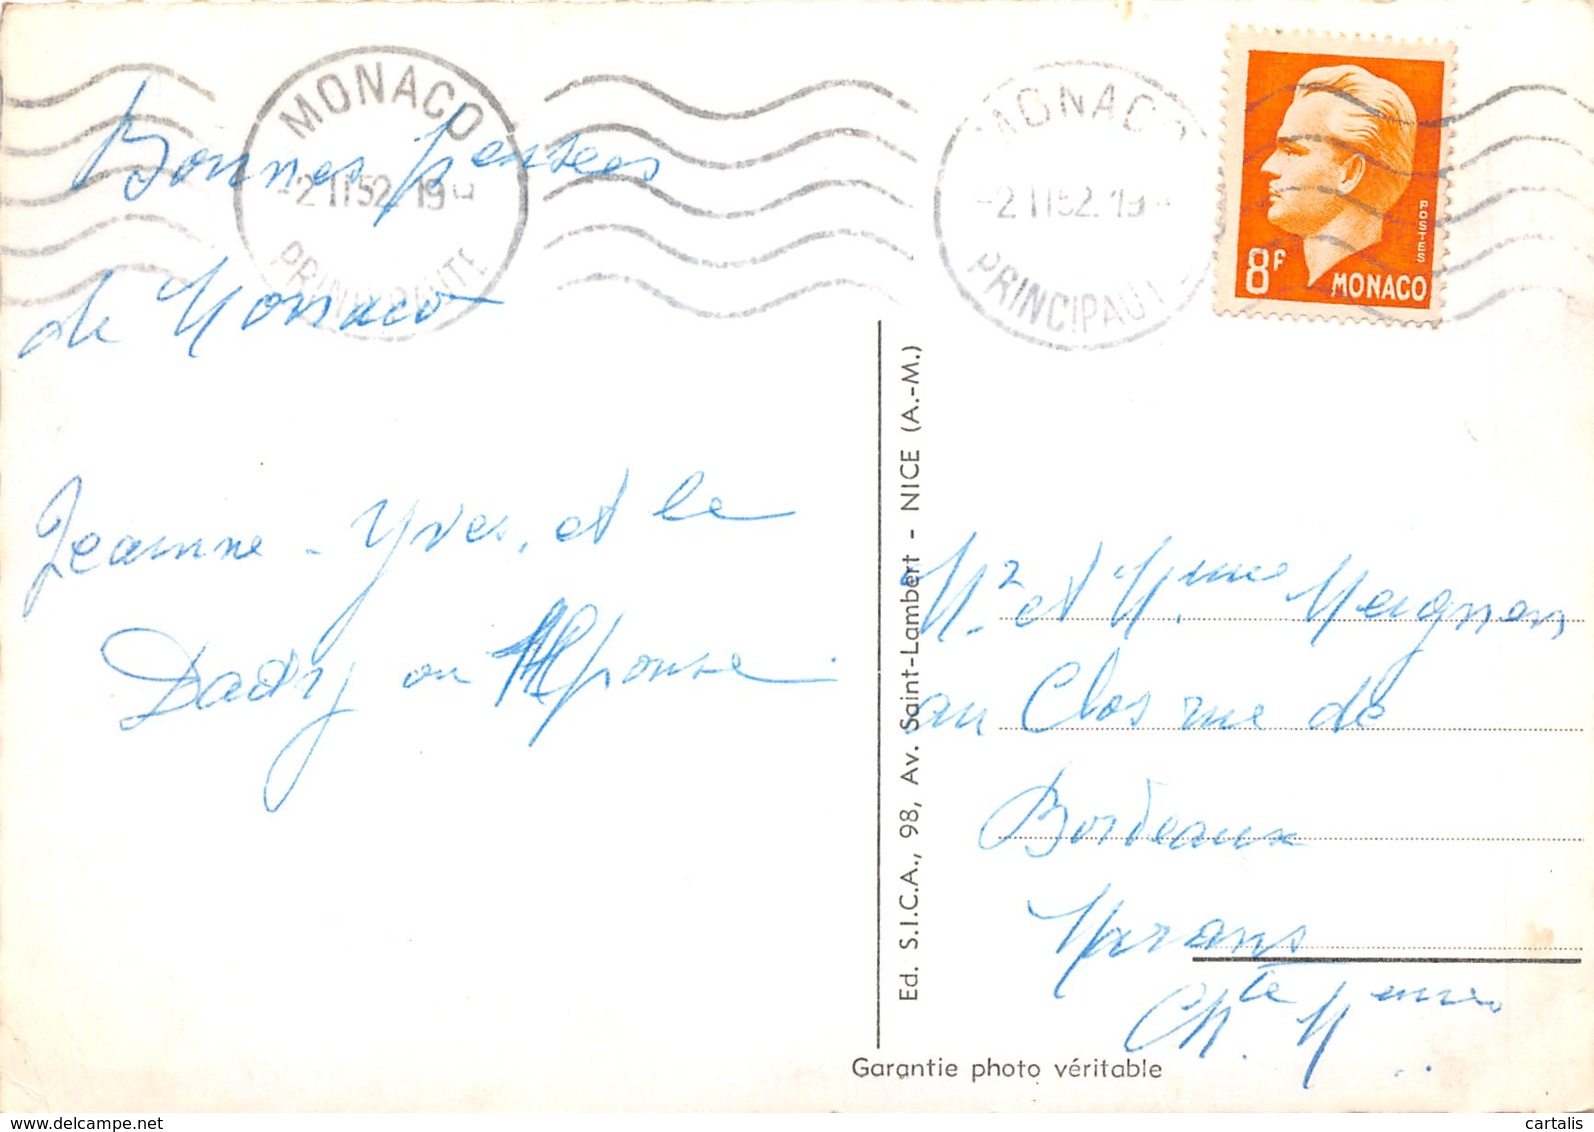 MONACO
-2 11 52. 19H
PRINCIPAUTE
MONACO
-2 11 52. 19H
PRINCIPAUTE
POSTES
8F MONACO
Bonnes pensées
de Monaco
Jeanne - Yves, et le
Dady ou Alphonse.
Ed. S.I.C.A., 98, Av. Saint-Lambert - NICE (A.-M.)
Mr et Mme Meignen
au Clos rue de
Bordeaux
Marans
Chte Mme
Garantie photo véritable
www.delcampe.net
cartalis